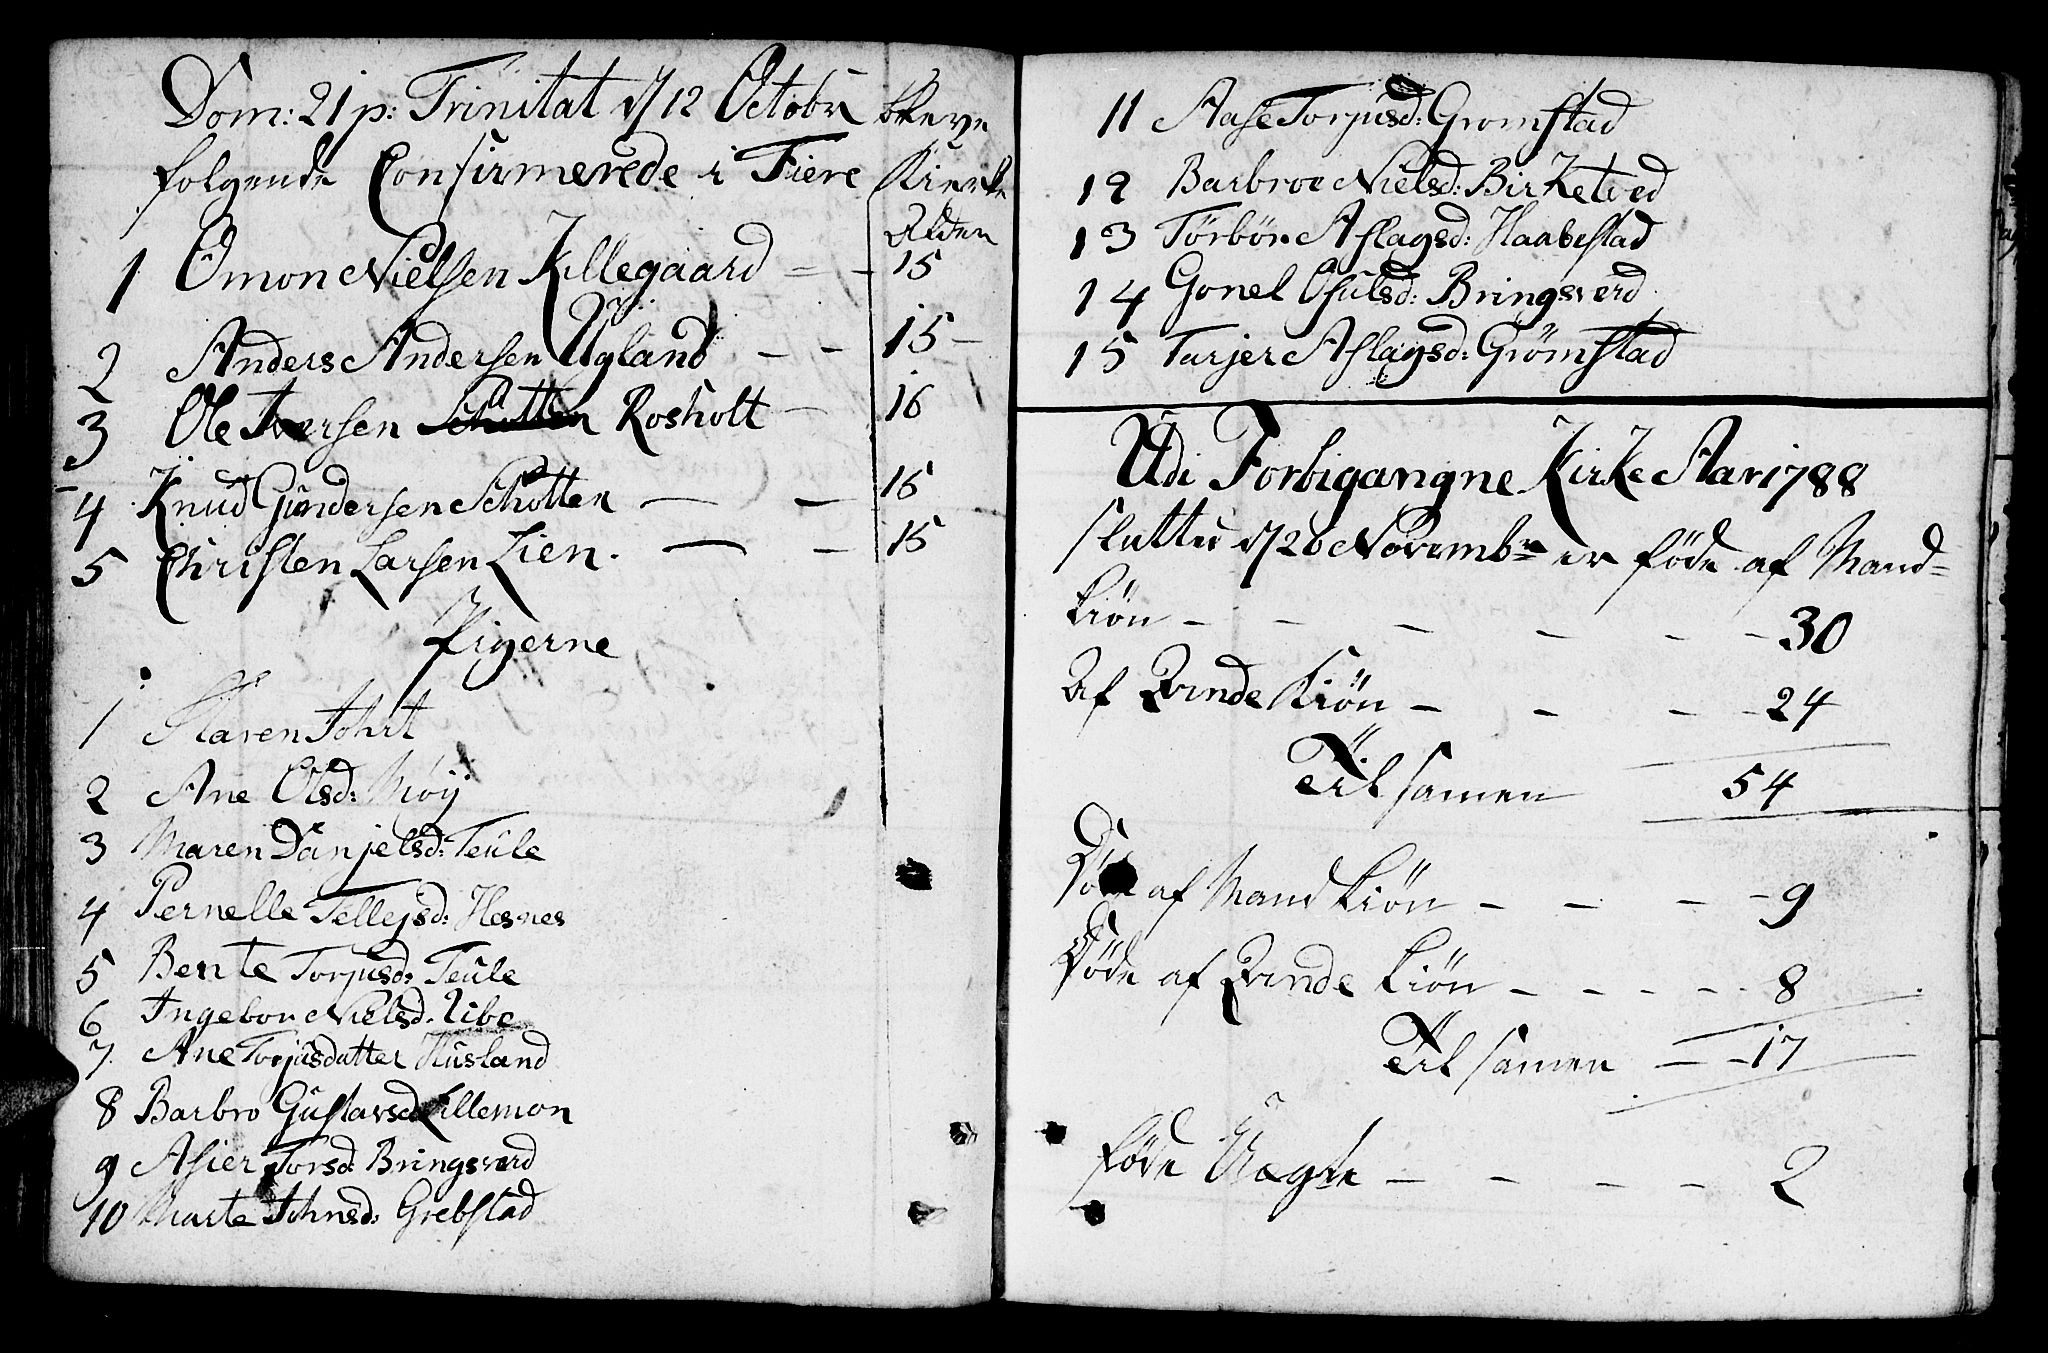 Dom: 21 p: Trinitat d/12 Octobr bleve
følgende Confirmerede i Fiere Kierke
Alder
1 Omon Nielsen Killegaard = - 15
2 Anders Andersen Ugland - - 15 -
3 Ole Iversen Schotten Rosholt - 16
4 Knud Gundersen Schotten - - 15
5 Christen Larsen Lien. - - 15
Pigerne
1 Maren Tohrt
2 Ane Olsd: Møÿ
3 Maren Danjelsd: Teule
4 Pernelle Tellejsd: Hesnes
5 Bente Torjusd: Teule
6 Ingebor Nielsd. Vibe
7. Ane Torjusdatter Husland
8 Barbro Gustavsd Lillemon
9 Asier Torsd: Bringsverd
10 Marte Johnsd: Grebstad
11 Aase Torjusd: Gromstad
12 Barbroe Nielsd: Birketved
13 Törbör Aslagsd: Haabestad
14 Gonel Osulsd: Bringsverd
15 Tarjer Aslagsd: Grömstad
Udi Forbigangne Kirke Aar 1788
sluttes d/26 Novembr er føde af Mand=
kiön - - - - - - 30
Af Qvinde Kiön - - - - 24
Tilsamen 54
Döde af Mand kiön - - - - 9
Döde af Qvinde kiön - - - - - 8
Tilsamen - - 17
føde Uægte - - - - 2